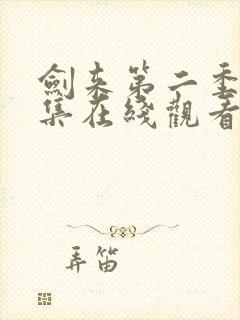 劍来第二季
集在綫觀看
弄笛